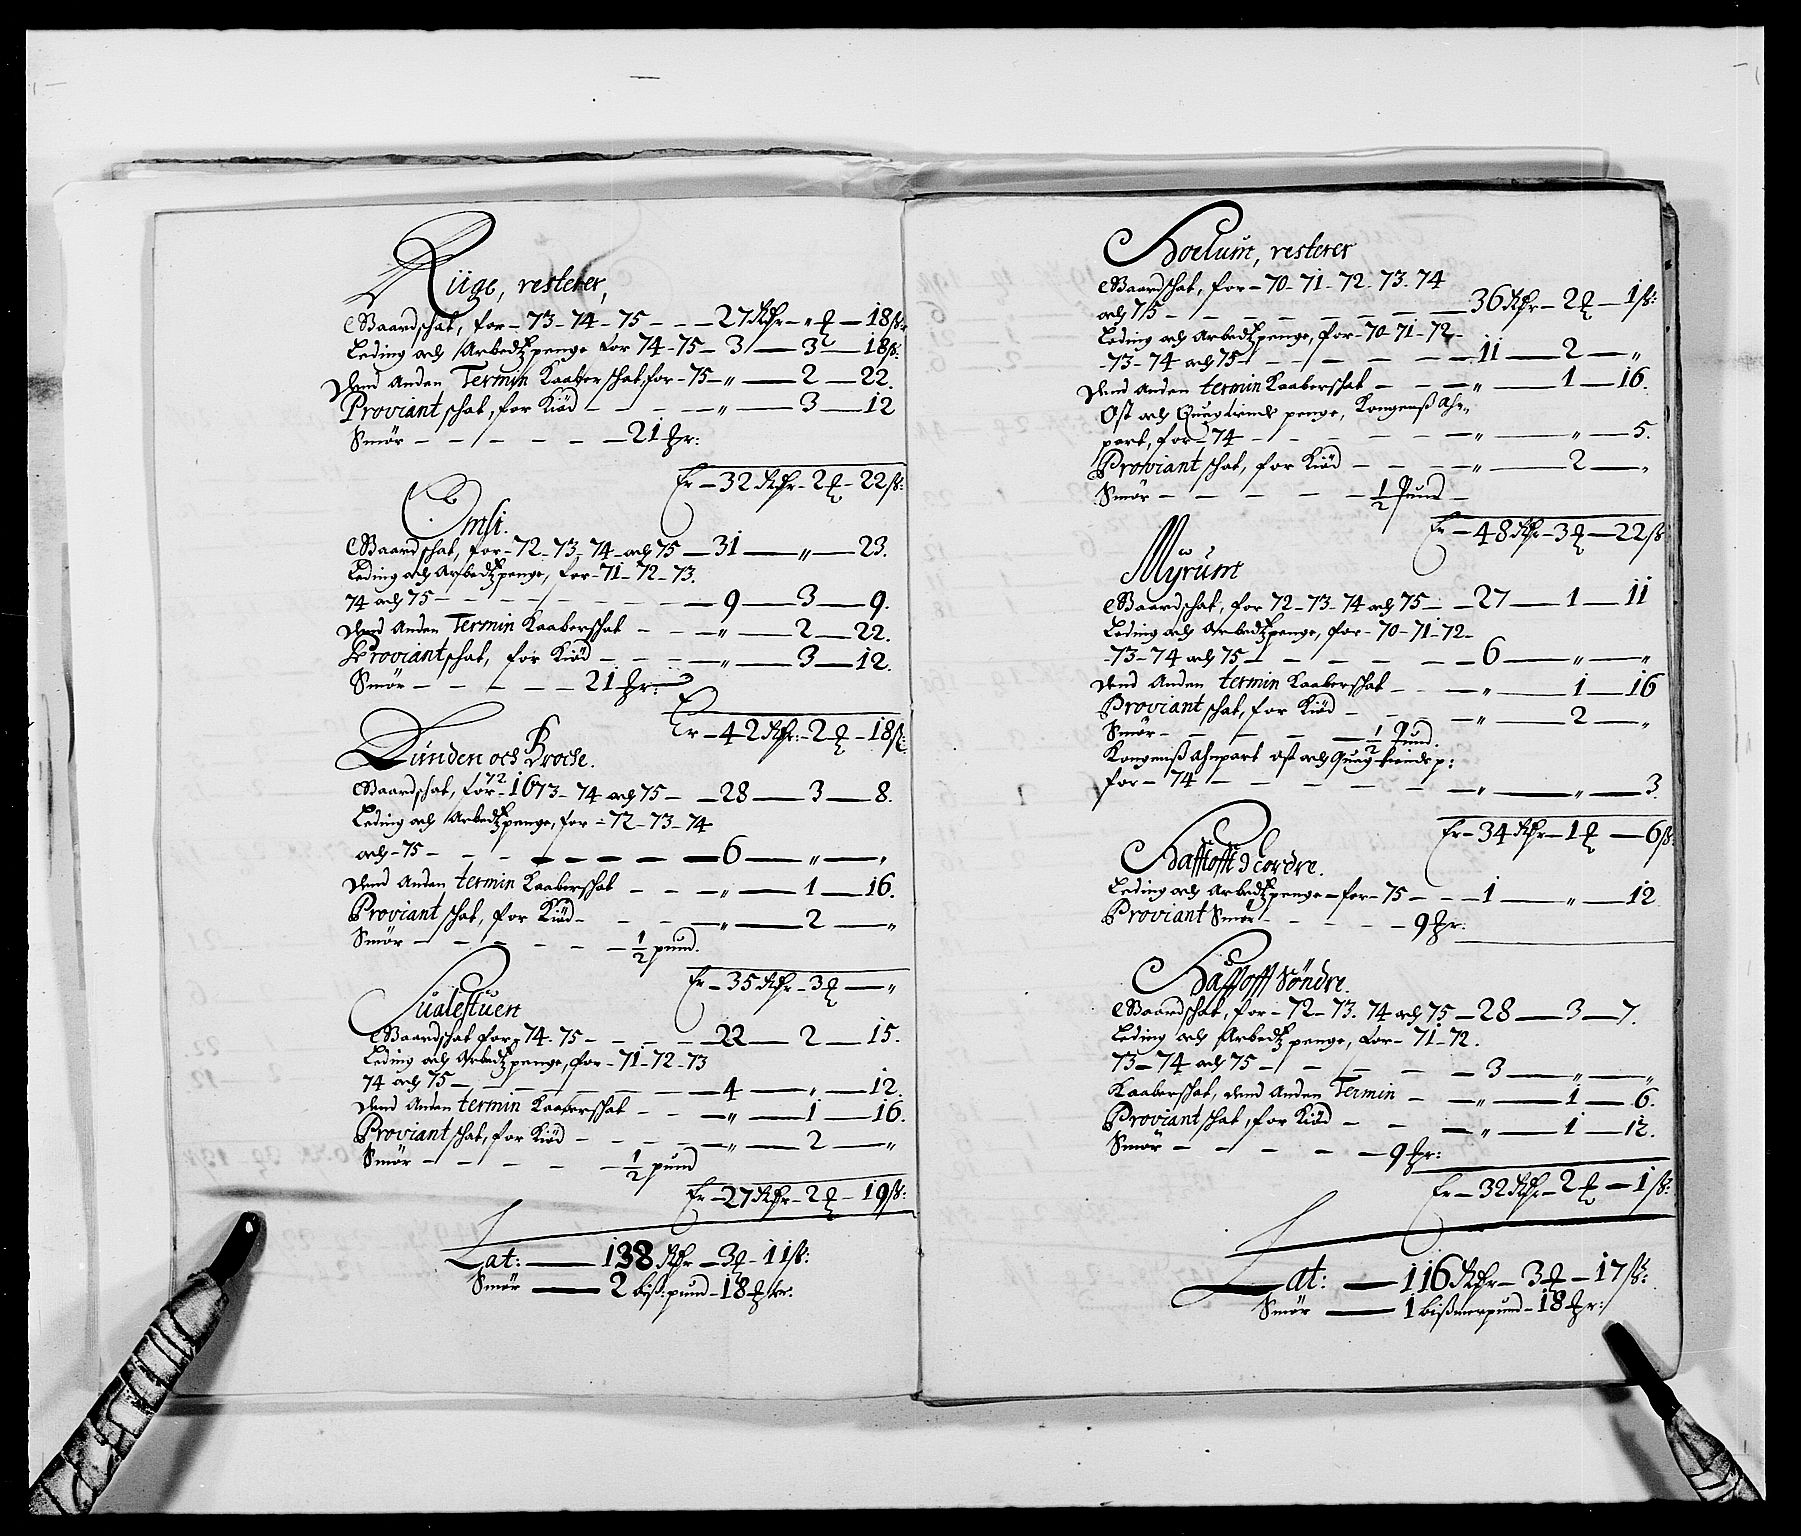 Riige, resterer,
Baardschat, for - 73 - 74 - 75 - - - 27 Rdr - " ß - 18 ß:
Leding och Arbedtzpenge for 74 - 75 - 3 — 3 — 18 ß:
Dend Anden Termin Kaaberschat, for - 75 - " — 2 — 22.
Proviant schat, for Kiød - - - - " — 3 — 12
Smör - - - - - - 21 ꝑr:
Er - 32 Rdr - 2 - 22 ß:
Omsi.
Baardschat, for - 72 - 73 - 74 - och 75 — 31 — " — 23.
Leding och Arbedtzpenge, for - 71 - 72 - 73.
74 och 75 - - - - - - - 9 — 3 — 9.
Dend Anden Termin Kaaberschat - - - " — 2 — 22.
Proviantschat, for Kiød - - - - " — 3 — 12.
Smör - - - - - 21 ꝑr:
Er - 42 Rdr: - 2 - 18 ß:
Lunden och Broche.
Baardschat, for - 72 - 1673 - 74 och 75 - - 28 — 3 — 8.
Leding och Arbedtzpenge, for - 72 - 73 - 74
och - 75 - - - - - - - - 6 — " — "
Dend Anden termin Kaaberschat - - - " — 1 — 16.
Proviant schat, for Kiød - - - - " — 2 — "
Smör - - - - - - ½ pund.
Er - 35 Rdr - 3 — "
Sualestuen
Baardschat for - 74 - 75 - - - - 22 — 2 — 15.
Leding och Arbedtzpenge, for - 71 - 72 - 73
74 och 75 - - - - - - - 4 — " — 12.
Dend Anden termin Kaaberschat - - " — 1 — 16.
Proviant schat, for Kiød - - - - " — 2 — "
Smör - - - - - ½ pund
Er - 27 Rdr - 2 - 19 ß:
Lat: — 138 Rdr - 3 - 11 ß:
Smör — 2 biß: pund - 18 ꝑr:
Hoelum, resterer
Baardschat, for - 70 - 71 - 72 - 73 - 74
och 75 - - - - - - - - 36 Rdr - 2 - 1 ß:
Leding och Arbedtzpenge, for - 70 - 71 - 72 -
- 73 - 74 och 75 - - - - - - 11 — 2 — "
Dend Anden termin Kaaberschat - - - " — 1 — 16.
Ost och penge, Kongenß
part, for - 74 - - - - - - " — " — 5.
Proviant schat, for Kiød - - - - " — 2 — "
Smör - - - - - - ½ Pund -
Er - 48 Rdr - 3 - 22 ß
Myrum
Baardschat, for 72 - 73 - 74 och 75 - - 27 — 1 — 11
Leding och Arbedtzpenge, for - 70 - 71 - 72 -
- 73 - 74 och 75 - - - - - - 6 — " — "
Dend Anden termin Kaaberschat - - - " — 1 — 16
Proviant schat, for Kiød - - - " — 2 — "
Smör - - - - - - ½ Pund.
Kongenß ost och p:
for - 74 - - - - - - - " — " — 3.
Er - 34 Rdr - 1 - 6 ß
Haffstofft Nordre.
Leding och Arbedtzpenge - for - 75 - - - 1 — " — 12
Proviant Smör - - - - 9 ꝑr:
Haffstofft Söndre.
Baardschat, for - 72 - 73 - 74 och 75 - 28 — 3 — 7.
Leding och Arbedtzpenge, for - 71 - 72.
73 - 74 och 75 - - - - - - 3 — " — "
Kaaberschat, dend Anden Termin - - " — 1 — 6.
Proviant schat, for Kiød - - - " — 1 — 12.
Smör - - - - - - 9 ꝑr:
Er - 32 Rdr - 2 - 1 ß:
Lat: — 116 Rdr - 3 - 17 ß:
Smör — 1 bißmerpund - 18 ꝑr: